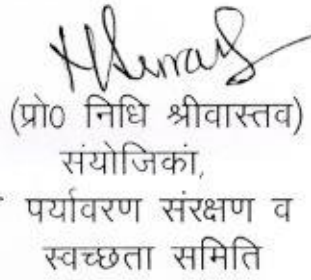 (प्रो0 निधि श्रीवास्तव)
संयोजिका,
पर्यावरण संरक्षण व
स्वच्छता समिति